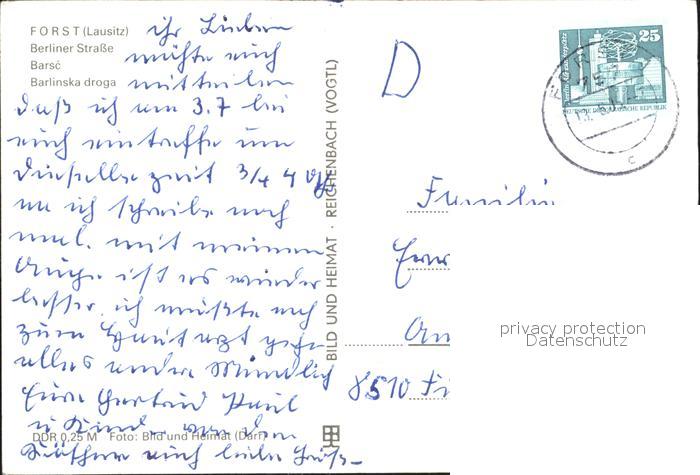 FORST (Lausitz)
Berliner Straße
Barsć
Barlinska droga
ihr Lieben
möchte euch
mitteilen
daß ich am 3.7 bei
euch eintreffe um
dieselbe zeit 3/4 4 Uhr
na ich schreibe noch
mal. mit meinen
Auge ist es wieder
besser. ich müßte noch
zum Hautarzt gehn
alles andre Mündlich
Eure Gertrud Paul
u Kind
euch liebe Grüß
DDR 0,25 M Foto: Bild und Heimat (Darr)
BILD UND HEIMAT · REICHENBACH (VOGTL)
D
25
DEUTSCHE DEMOKRATISCHE REPUBLIK
c
Familie
8510
privacy protection
Datenschutz